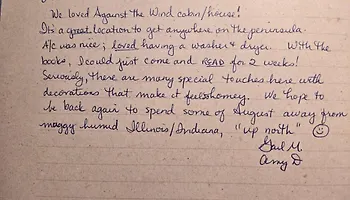 We loved Against the Wind cabin/house!
It's a great location to get anywhere on the peninsula.
A/c was nice; loved having a washer & dryer. With the
books, I could just come and READ for 2 weeks!
Seriously, there are many special touches here with
decorations that make it feel homey. We hope to
be back again to spend some of August away from
muggy humid Illinois/Indiana, "up north" ☺
Gail M.
Amy D